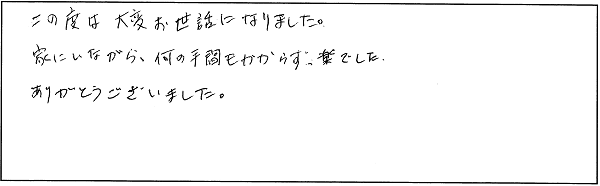 この度は大変お世話になりました。
家にいながら、何の手間もかからず楽でした。
ありがとうございました。